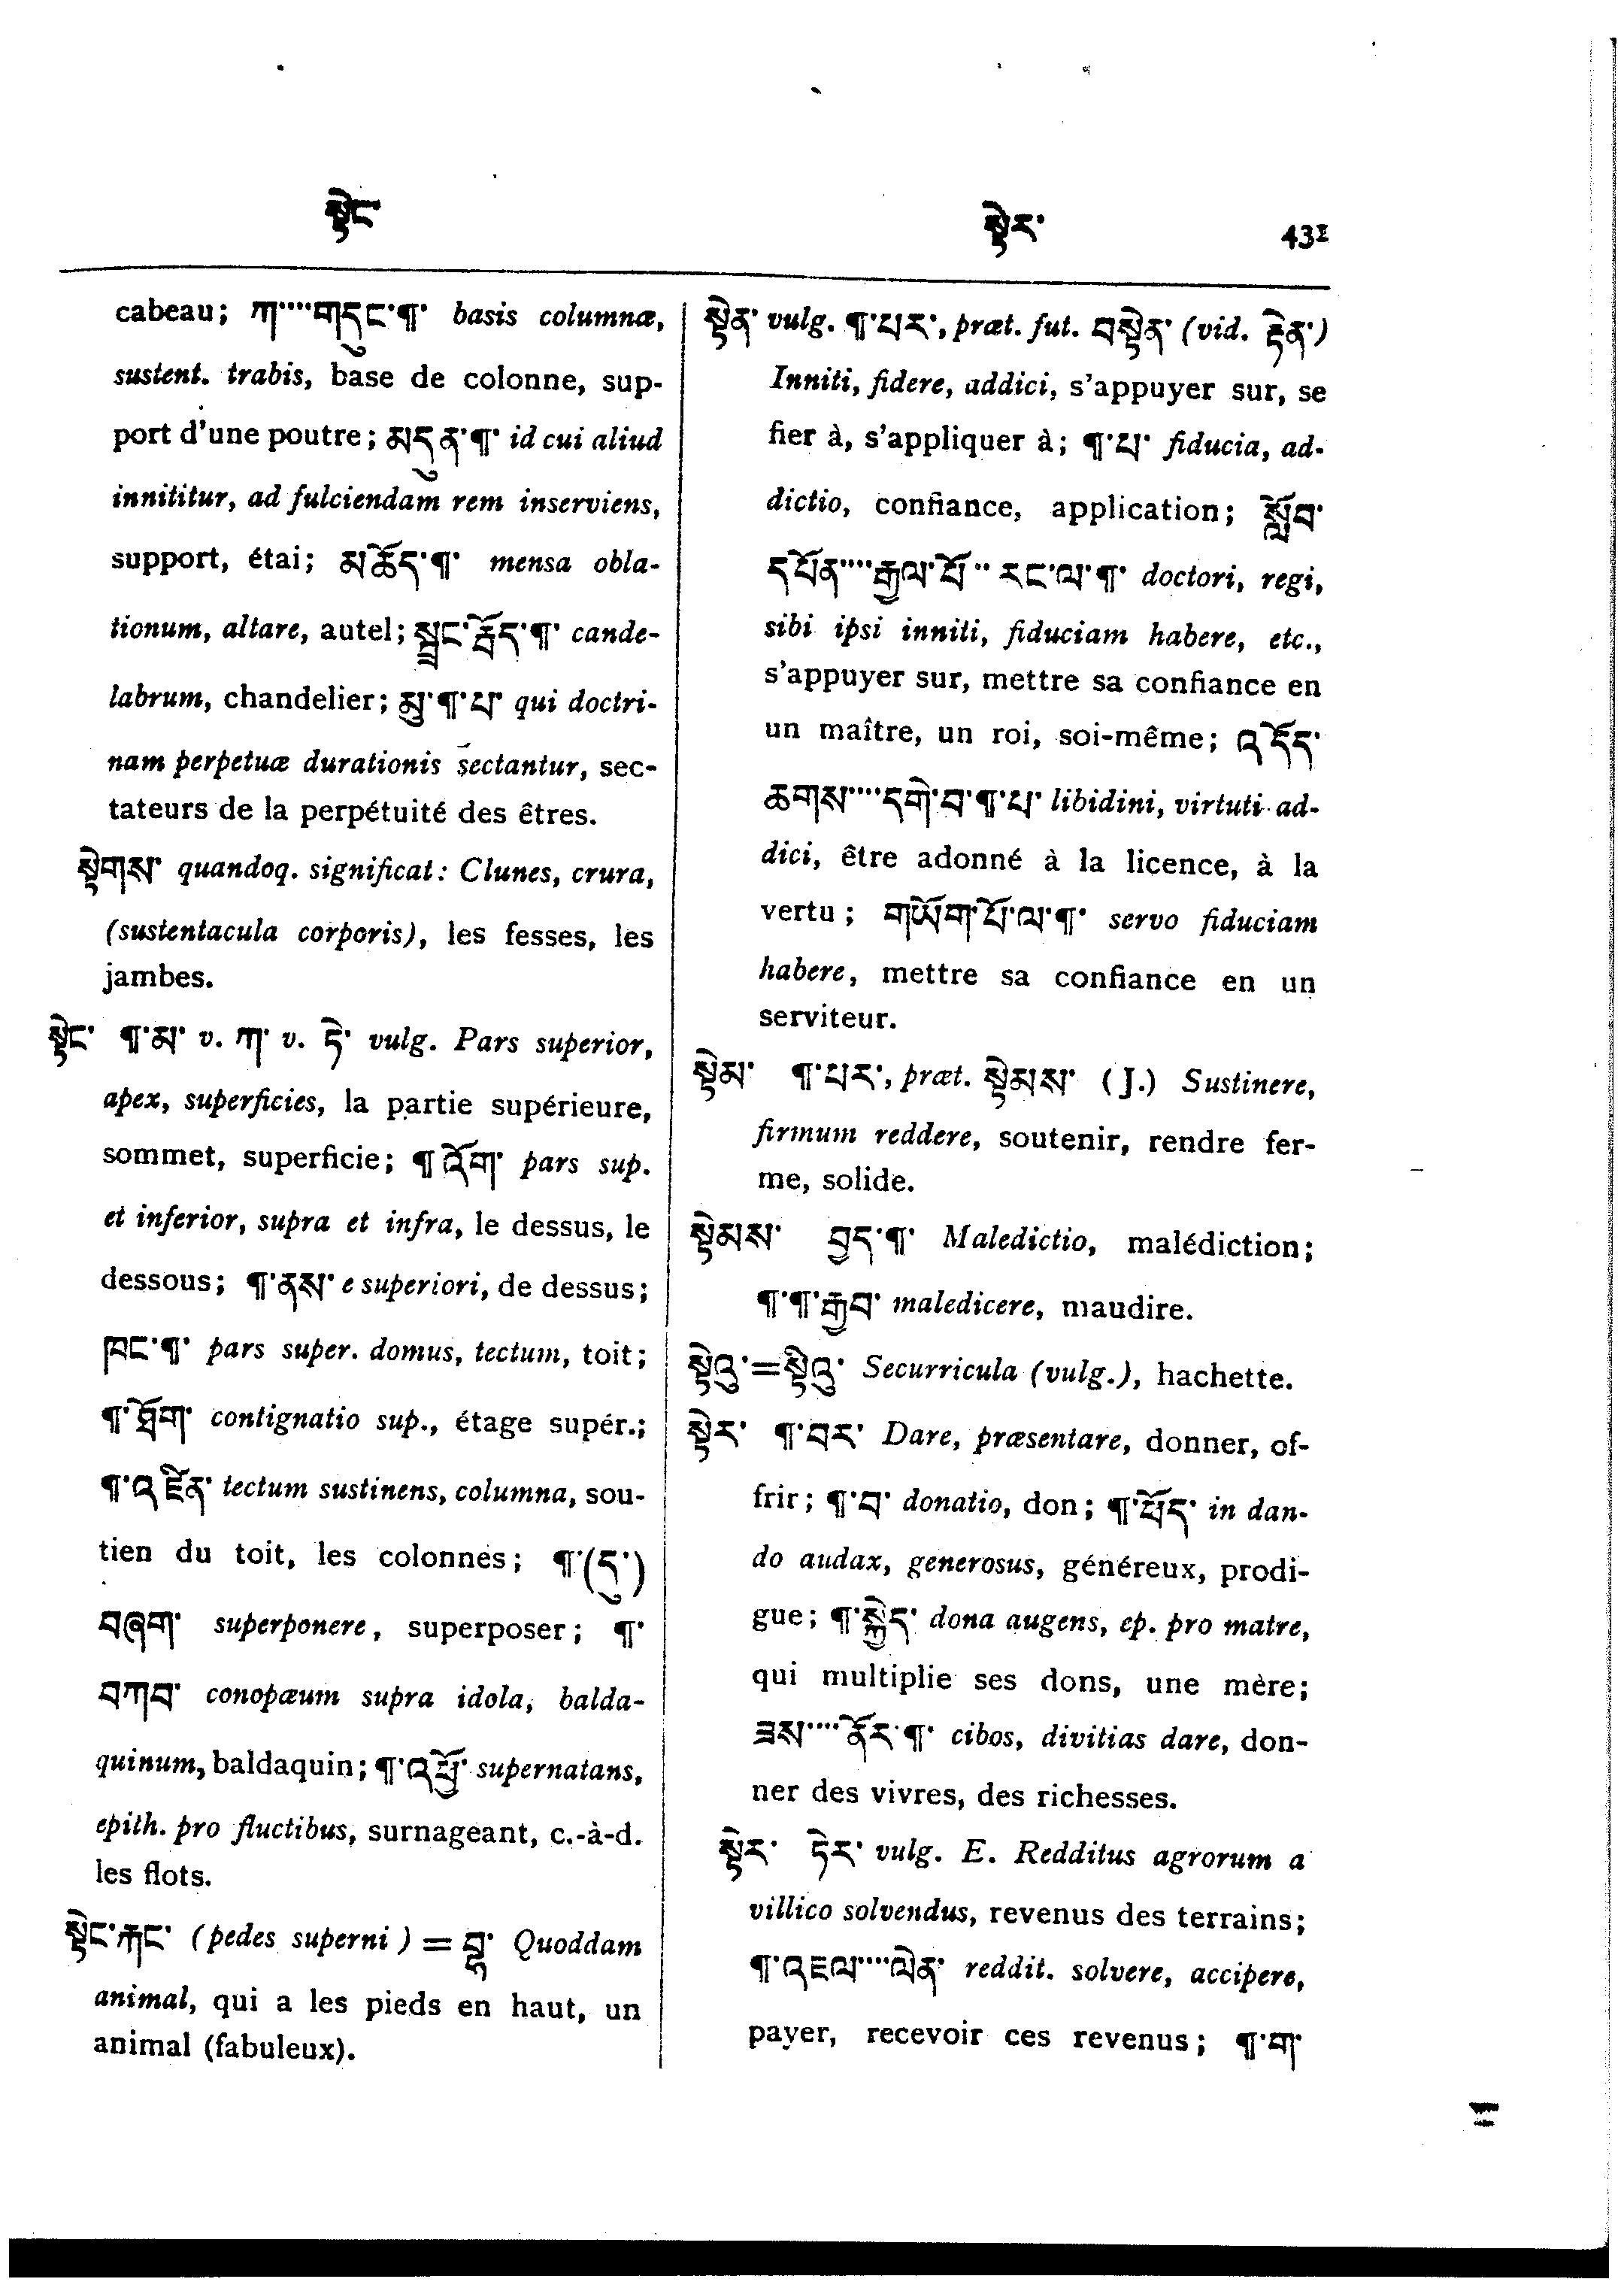 སྟེང་
སྟེར་ 431
cabeau; ཀ་····གདུང་¶་ basis columnæ,
sustent. trabis, base de colonne, sup-
port d'une poutre; མདུན་¶་ id cui aliud
innititur, ad fulciendam rem inserviens,
support, étai; མཆོད་¶་ mensa obla-
tionum, altare, autel; སྣང་རྟོད་¶་ cande-
labrum, chandelier; མུ་¶་པ་ qui doctri-
nam perpetuæ durationis sectantur, sec-
tateurs de la perpétuité des êtres.
སྟེགས་ quandoq. significat: Clunes, crura,
(sustentacula corporis), les fesses, les
jambes.
སྟེང་ ¶་མ་ v. ཀ་ v. ཏེ་ vulg. Pars superior,
apex, superficies, la partie supérieure,
sommet, superficie; ¶་འོག་ pars sup.
et inferior, supra et infra, le dessus, le
dessous; ¶་ནས་ e superiori, de dessus;
ཁང་¶་ pars super. domus, tectum, toit;
¶་ཐོག་ contignatio sup., étage supér.;
¶་འཛིན་ tectum sustinens, columna, sou-
tien du toit, les colonnes; ¶་(དུ་)
བཞག་ superponere, superposer; ¶་
བཀབ་ conopæum supra idola, balda-
quinum, baldaquin; ¶་འཕྱོ་ supernatans,
epith. pro fluctibus, surnageant, c.-à-d.
les flots.
སྟེང་རྐང་ (pedes superni) = Quoddam
animal, qui a les pieds en haut, un
animal (fabuleux).
སྟེན་ vulg. ¶་པར་, præt. fut. བསྟེན་ (vid. རྟེན་)
Inniti, fidere, addici, s'appuyer sur, se
fier à, s'appliquer à; ¶་པ་ fiducia, ad-
dictio, confiance, application; སློབ་
དཔོན་····རྒྱལ་པོ་·· རང་ལ་¶་ doctori, regi,
sibi ipsi inniti, fiduciam habere, etc.,
s'appuyer sur, mettre sa confiance en
un maître, un roi, soi-même; འདོད་
ཆགས་····དགེ་བ་¶་པ་ libidini, virtuti ad-
dici, être adonné à la licence, à la
vertu; གཡོག་པོ་ལ་¶་ servo fiduciam
habere, mettre sa confiance en un
serviteur.
སྟེམ་ ¶་པར་, præt. སྟེམས་ (J.) Sustinere,
firmum reddere, soutenir, rendre fer-
me, solide.
སྟེམས་ བྱད་¶་ Maledictio, malédiction;
¶་¶་རྒྱབ་ maledicere, maudire.
སྟེའུ་=སྟིའུ་ Securricula (vulg.), hachette.
སྟེར་ ¶་བར་ Dare, præsentare, donner, of-
frir; ¶་བ་ donatio, don; ¶་ཕོད་ in dan-
do audax, generosus, généreux, prodi-
gue; ¶་སྐྱེད་ dona augens, ep. pro matre,
qui multiplie ses dons, une mère;
ཟས་····ནོར་¶་ cibos, divitias dare, don-
ner des vivres, des richesses.
སྟེར་ ཏེར་ vulg. E. Redditus agrorum a
villico solvendus, revenus des terrains;
¶་འཇལ་····ལེན་ reddit. solvere, accipere,
payer, recevoir ces revenus; ¶་ག་